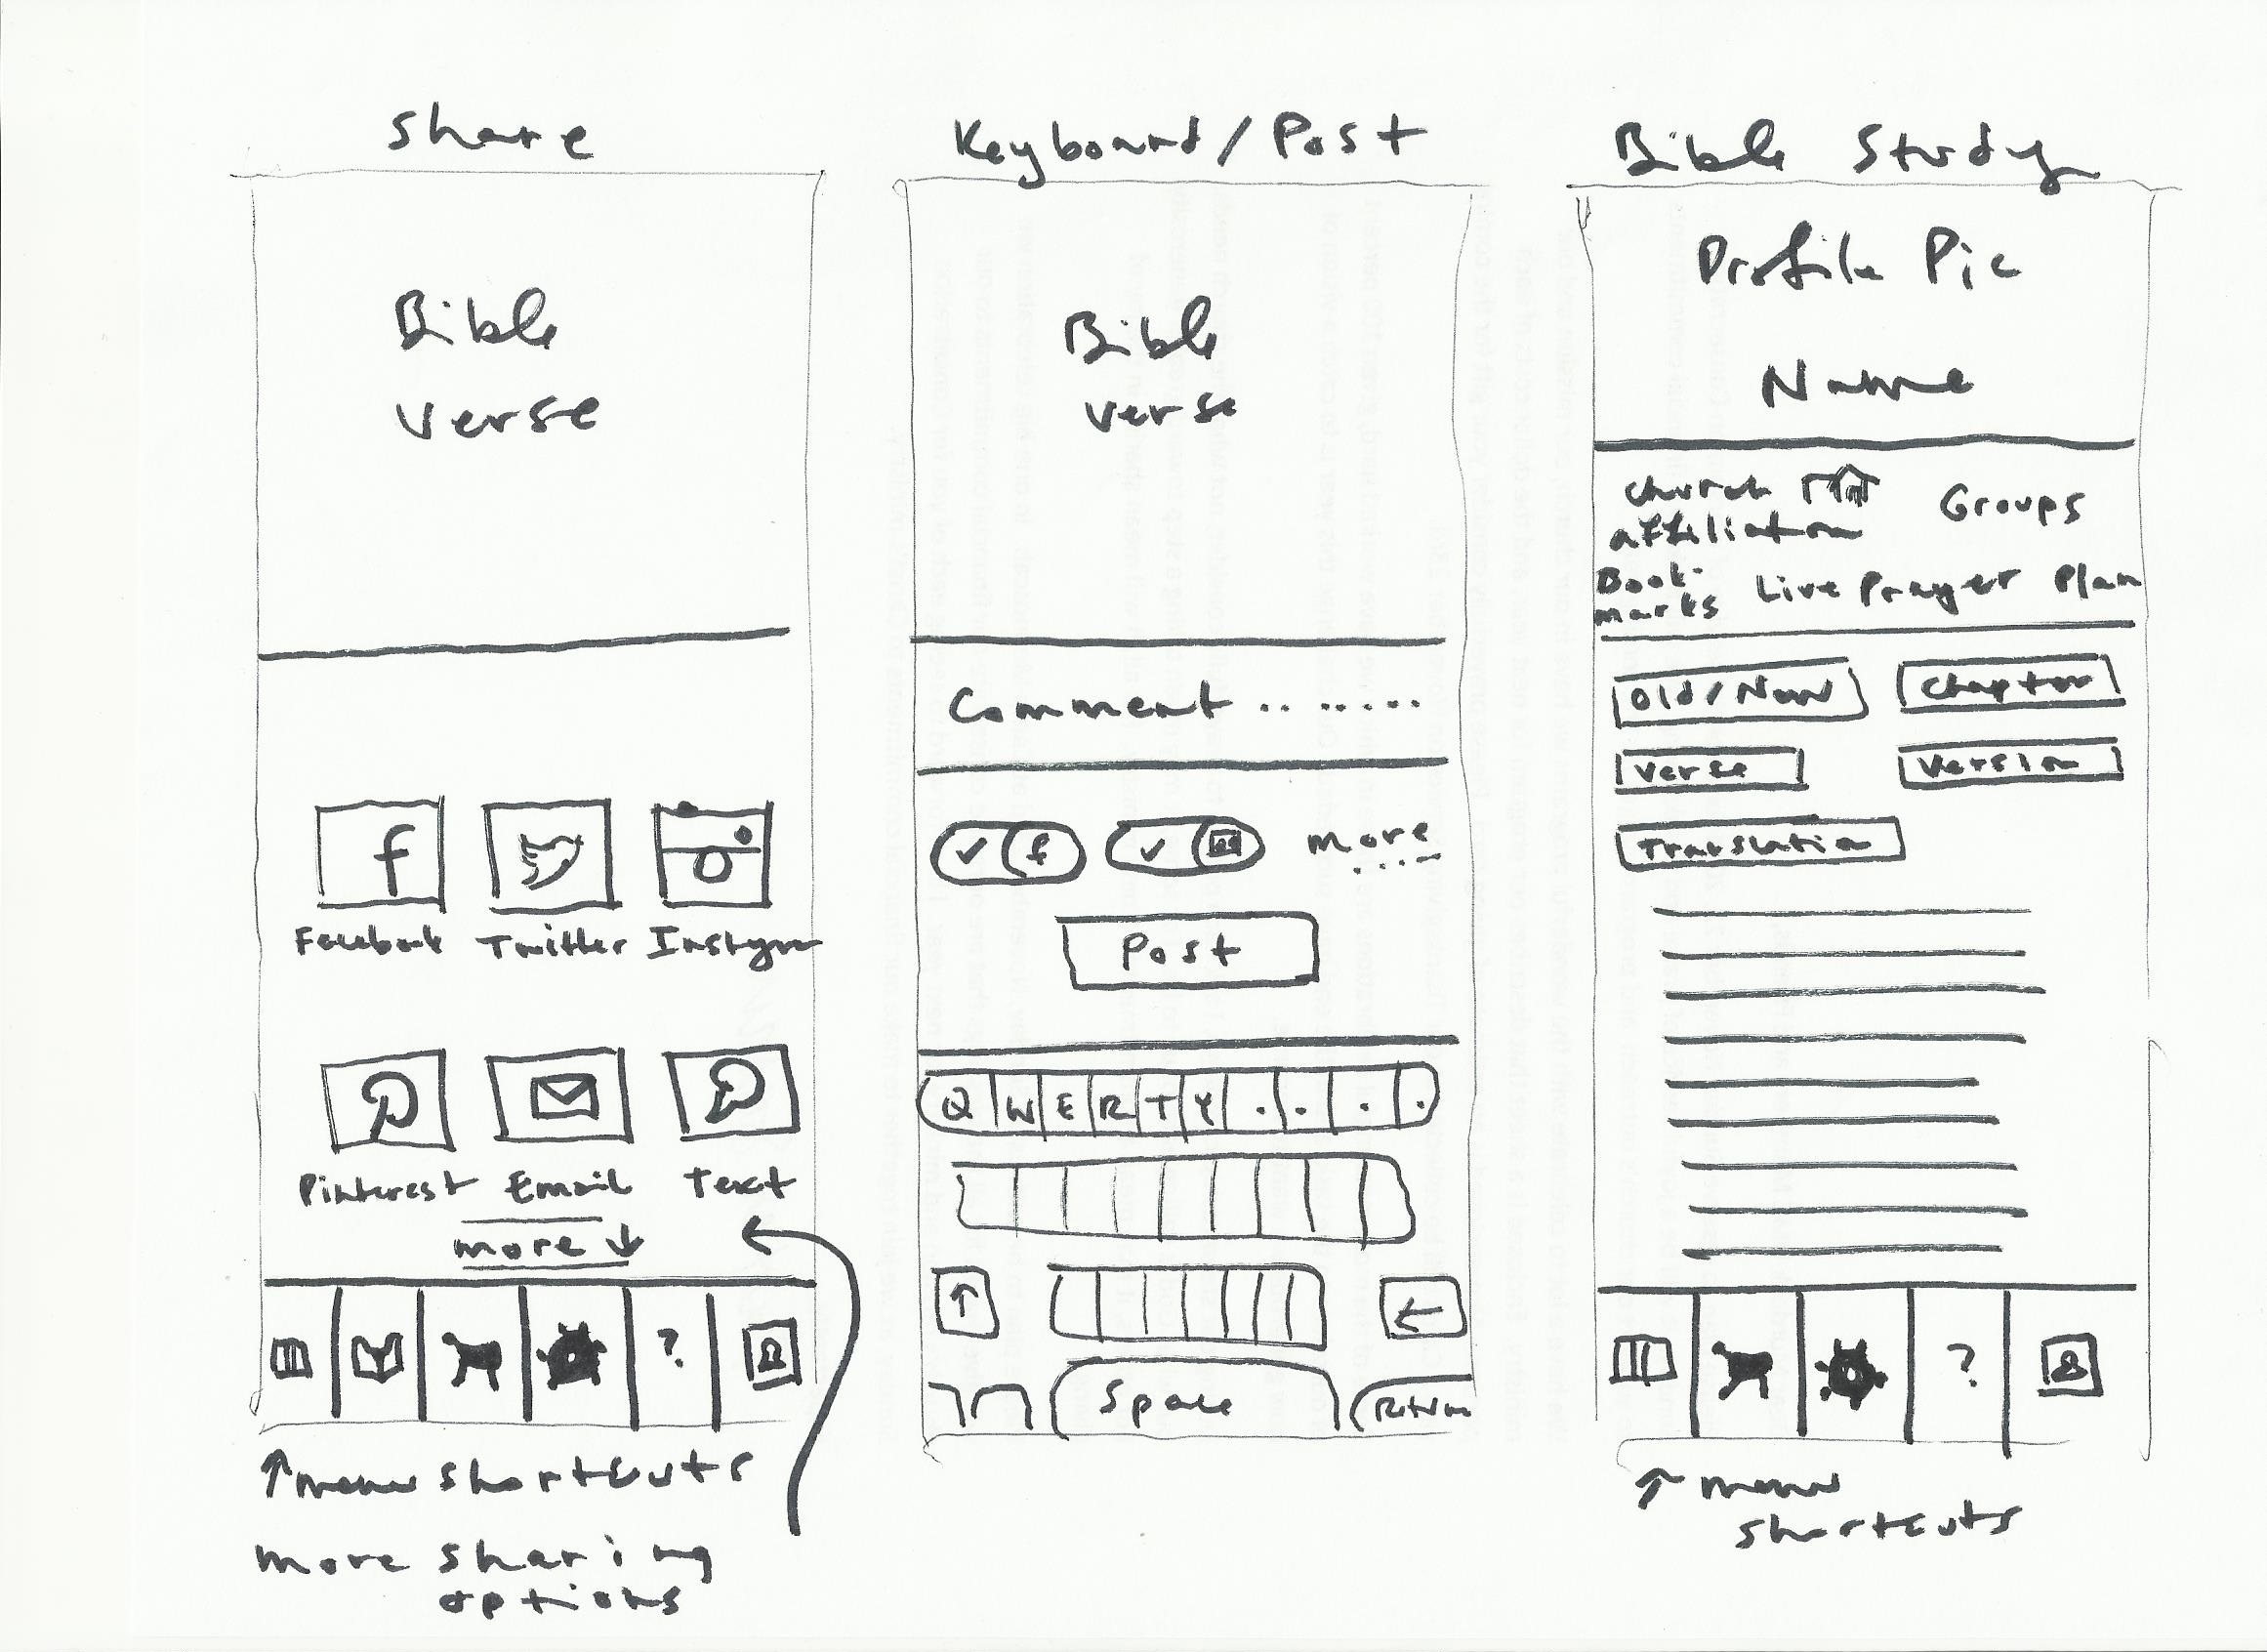 Share
Bible
verse
f
Facebook Twitter Instagram
Pinterest Email Text
more ↓
?
↑ menu shortcuts
more sharing
options
Keyboard/Post
Bible
verse
Comment .......
✓ f ✓ more
....
Post
Q W E R T Y . . . .
↑ ←
Space Return
Bible Study
Profile Pic
Name
Church
affiliation
Groups
Book-
marks
Live Prayer Plan
Old/New Chapter
Verse Version
Translation
?
↑ menu
shortcuts